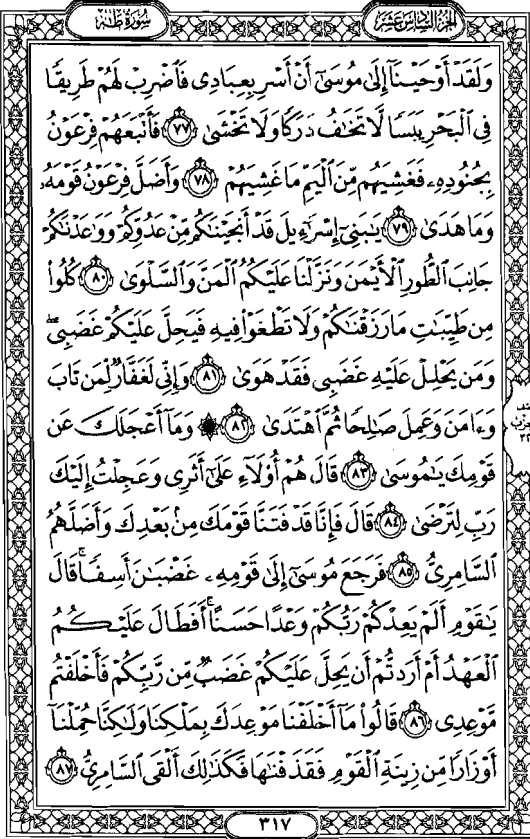 الجزء السادس عشر
سورة طه
وَلَقَدْ أَوْحَيْنَآ إِلَىٰ مُوسَىٰٓ أَنْ أَسْرِ بِعِبَادِى فَٱضْرِبْ لَهُمْ طَرِيقًا
فِى ٱلْبَحْرِ يَبَسًا لَّا تَخَٰفُ دَرَكًا وَلَا تَخْشَىٰ ٧٧ فَأَتْبَعَهُمْ فِرْعَوْنُ
بِجُنُودِهِۦ فَغَشِيَهُم مِّنَ ٱلْيَمِّ مَا غَشِيَهُمْ ٧٨ وَأَضَلَّ فِرْعَوْنُ قَوْمَهُۥ
وَمَا هَدَىٰ ٧٩ يَٰبَنِىٓ إِسْرَٰٓءِيلَ قَدْ أَنجَيْنَٰكُم مِّنْ عَدُوِّكُمْ وَوَٰعَدْنَٰكُمْ
جَانِبَ ٱلطُّورِ ٱلْأَيْمَنَ وَنَزَّلْنَا عَلَيْكُمُ ٱلْمَنَّ وَٱلسَّلْوَىٰ ٨٠ كُلُوا۟
مِن طَيِّبَٰتِ مَا رَزَقْنَٰكُمْ وَلَا تَطْغَوْا۟ فِيهِ فَيَحِلَّ عَلَيْكُمْ غَضَبِى ۖ
وَمَن يَحْلِلْ عَلَيْهِ غَضَبِى فَقَدْ هَوَىٰ ٨١ وَإِنِّى لَغَفَّارٌ لِّمَن تَابَ
وَءَامَنَ وَعَمِلَ صَٰلِحًا ثُمَّ ٱهْتَدَىٰ ٨٢ ۞ وَمَآ أَعْجَلَكَ عَن
قَوْمِكَ يَٰمُوسَىٰ ٨٣ قَالَ هُمْ أُو۟لَآءِ عَلَىٰٓ أَثَرِى وَعَجِلْتُ إِلَيْكَ
رَبِّ لِتَرْضَىٰ ٨٤ قَالَ فَإِنَّا قَدْ فَتَنَّا قَوْمَكَ مِنۢ بَعْدِكَ وَأَضَلَّهُمُ
ٱلسَّامِرِىُّ ٨٥ فَرَجَعَ مُوسَىٰٓ إِلَىٰ قَوْمِهِۦ غَضْبَٰنَ أَسِفًا ۚ قَالَ
يَٰقَوْمِ أَلَمْ يَعِدْكُمْ رَبُّكُمْ وَعْدًا حَسَنًا ۚ أَفَطَالَ عَلَيْكُمُ
ٱلْعَهْدُ أَمْ أَرَدتُّمْ أَن يَحِلَّ عَلَيْكُمْ غَضَبٌ مِّن رَّبِّكُمْ فَأَخْلَفْتُم
مَّوْعِدِى ٨٦ قَالُوا۟ مَآ أَخْلَفْنَا مَوْعِدَكَ بِمَلْكِنَا وَلَٰكِنَّا حُمِّلْنَآ
أَوْزَارًا مِّن زِينَةِ ٱلْقَوْمِ فَقَذَفْنَٰهَا فَكَذَٰلِكَ أَلْقَى ٱلسَّامِرِىُّ ٨٧
٣١٧